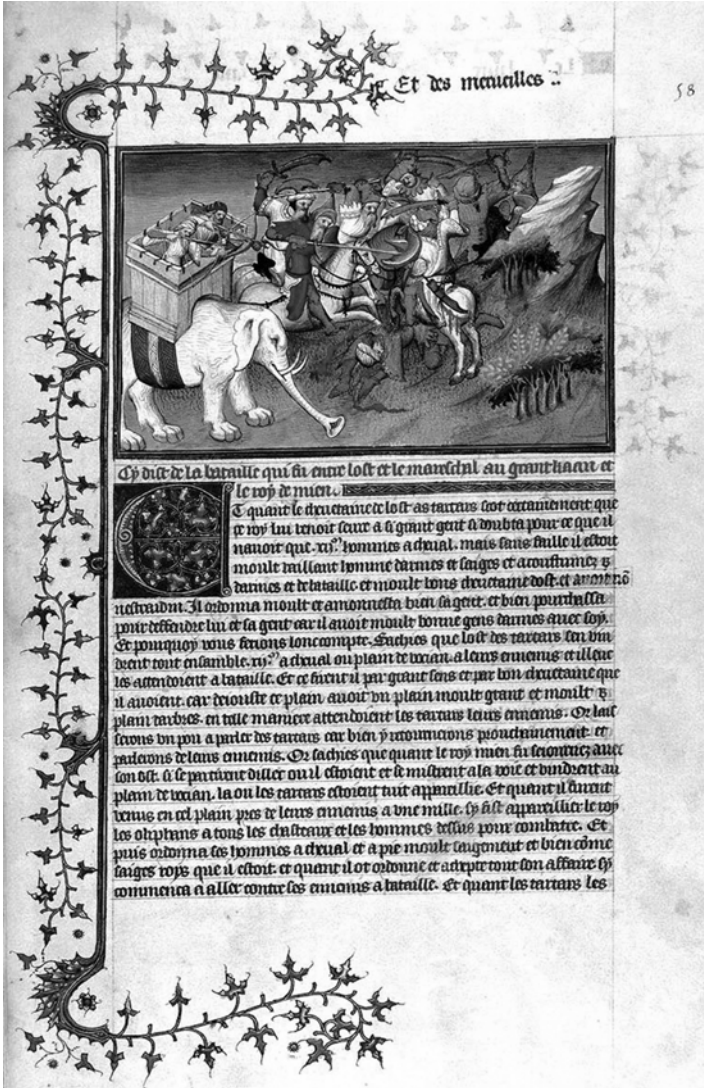 Et des merueilles :.
58
Cy dist de la bataille qui fu entre lost et le mareschal au grant kaan et
le roy de mien.
Et quant le cheuetaine de lost as tartars scot certainement que
ce roy lui venoit seure a si grant gent si doubta pour ce que il
nauoit que .xij.ᵐ hommes a cheual. mais sans faille il estoit
moult vaillant homme darmes et saiges et acoustumez
darmes et de bataille. et moult bons cheuetaine dost. et auoit nō
nestraidin. Il ordonna moult et amonnesta bien sa gent. et bien pourchassa
pour deffendre lui et sa gent car il auoit moult bonne gens darmes auec soy.
Et pourquoy vous ferions lonc compte. Sachies que lost des tartars sen vin
drent tout ensamble .xij.ᵐ a cheual ou plain de vocian. a leurs ennemis et illeuc
les attendoient a bataille. Et ce firent il par grant sens et par bon cheuetaine que
il auoient. car deiouste ce plain auoit vn plain moult grant et moult
plain darbres. en telle maniere attendoient les tartars leurs ennemis. Or lais
serons vn pou a parler des tartars car bien y retournerons prouchainement et
parlerons de leurs ennemis. Or sachies que quant le roy mien fu seiournez auec
son ost. si se partirent dillec ou il estoient et se mistrent a la voie et vindrent au
plain de vocian. la ou les tartars estoient tuit appareillie. Et quant il furent
venus en cel plain pres de leurs ennemis a vne mille. sy fist appareillier le roy
les oliphans a tous les chasteaux et les hommes dessus pour combatre. Et
puis ordonna ses hommes a cheual et a pie moult saigement et bien cōme
saiges roys que il estoit. et quant il ot ordonne et tout son affaire sy
commenca a aller contre ses ennemis a bataille. Et quant les tartars les